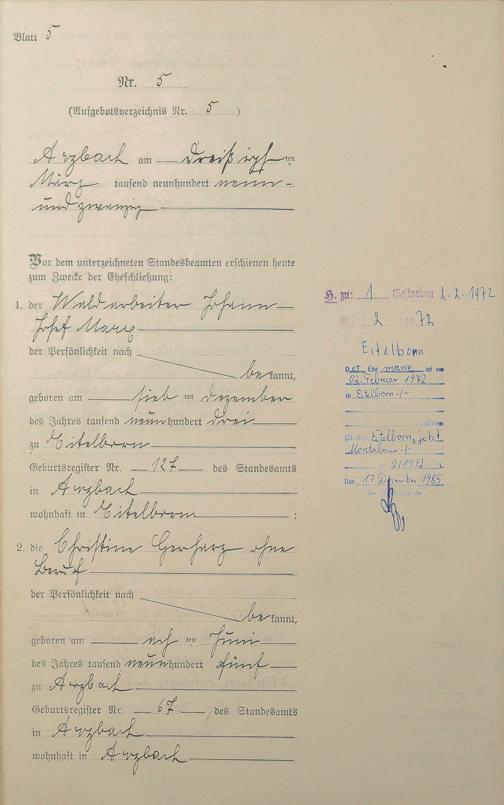 Blatt 5
Nr. 5
(Aufgebotsverzeichnis Nr. 5)
Arzbach am dreißigsten
März tausend neunhundert neun-
undzwanzig
Vor dem unterzeichneten Standesbeamten erschienen heute
zum Zwecke der Eheschließung:
1. der Waldarbeiter Johann
Josef Marx
der Persönlichkeit nach
bekannt,
geboren am sieb ten Dezember
des Jahres tausend neunhundert drei
zu Eitelborn
Geburtsregister Nr. 127 des Standesamts
in Arzbach
wohnhaft in Eitelborn ;
2. die Christine Gerharz ohne
Beruf
der Persönlichkeit nach
bekannt,
geboren am ach ten Juni
des Jahres tausend neunhundert fünf
zu Arzbach
Geburtsregister Nr. 67 des Standesamts
in Arzbach
wohnhaft in Arzbach
H. zu: 1 Gestorben 2.2.1972
Nr. 2 / 1972
Eitelborn
Der Ehemann ist am
02. Februar 1972
in Eitelborn -/-
Eitelborn, jetzt
Montabaur -/-
2/1972
Den 17. Dezember 1985